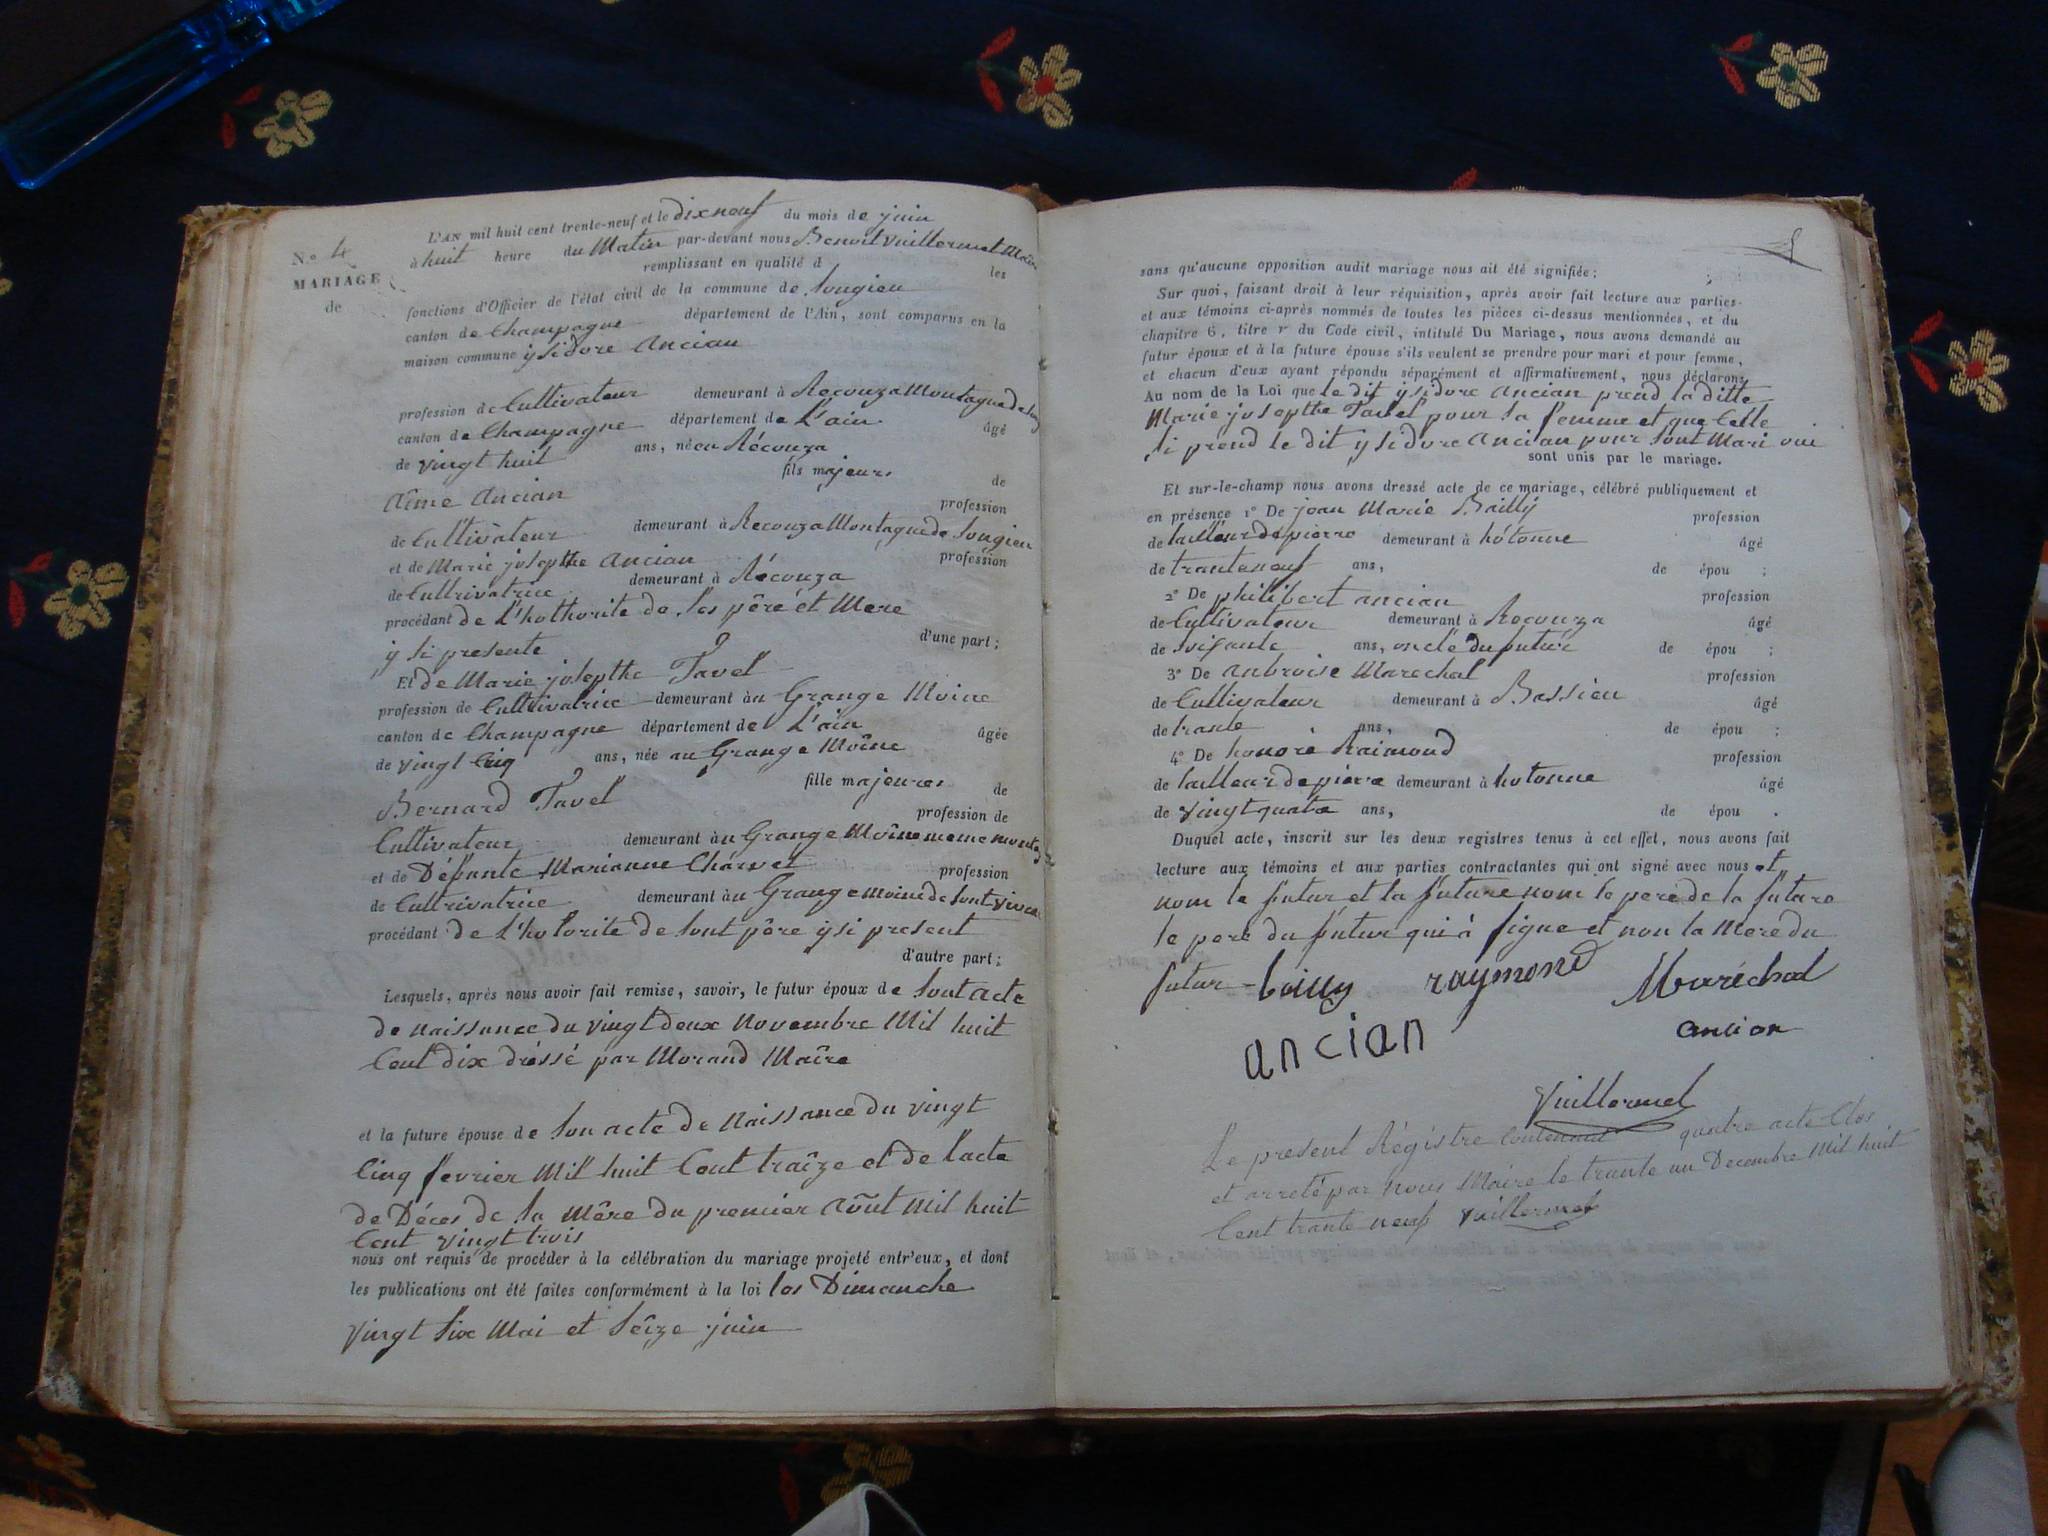 N° 4
MARIAGE
de
L'AN mil huit cent trente-neuf et le dix neuf du mois de juin
à huit heure du Matin par-devant nous Benoit Vuillermet Maire
remplissant en qualité d les
fonctions d'Officier de l'état civil de la commune de Songieu
canton de Champagne département de l'Ain, sont comparus en la
maison commune ysidore Ancian
profession de Cultivateur demeurant à Recouza Montagne de
canton de Champagne département de L'ain. âgé
de vingt huit ans, né a Récouza
fils majeurs de
Aime Ancian profession
de Cultivateur demeurant à Recouza Montagne de Songieu
et de Marie josepthe Ancian profession
de Cultrivatrice demeurant à Récouza
procédant de L'hothorite de Ses pêre et Mere
y si presente d'une part;
Et de Marie josepthe Tavel
profession de Cultivatrice demeurant àu Grange Moine
canton de Champagne département de L'ain âgée
de vingt Cinq ans, née au Grange Moîne
fille majeures de
Bernard Tavel profession de
Cultivateur demeurant àu Grange Moîne meme
et de Défunte Marianne Charvet profession
de Cultrivatrice demeurant àu Grange Moine de Sont
procédant de L'hotorite de Sont pêre y si present
d'autre part;
Lesquels, après nous avoir fait remise, savoir, le futur époux de Sont acte
de naissance du vingt deux Novembre Mil huit
Cent dix dréssé par Morand Maîre
et la future épouse de Son acte de Naissance du vingt
Cinq fevrier Mil huit Cent traîze et de l'acte
de Déces de Sa Mêre du premier Aôut Mil huit
Cent vingt trois
nous ont requis de procéder à la célébration du mariage projeté entr'eux, et dont
les publications ont été faites conformément à la loi les Dimanche
Vingt Six Mai et Seîze juin
sans qu'aucune opposition audit mariage nous ait été signifiée;
Sur quoi, faisant droit à leur réquisition, après avoir fait lecture aux parties
et aux témoins ci-après nommés de toutes les pièces ci-dessus mentionnées, et du
chapitre 6, titre v du Code civil, intitulé Du Mariage, nous avons demandé au
futur époux et à la future épouse s'ils veulent se prendre pour mari et pour femme,
et chacun d'eux ayant répondu séparément et affirmativement, nous déclarons
Au nom de la Loi que le dit ysidore Ancian prend la ditte
Marie josepthe Tavel pour Sa femme et que Celle
Si prend le dit ysidore Ancian pour Sont Mari oui
sont unis par le mariage.
Et sur-le-champ nous avons dressé acte de ce mariage, célébré publiquement et
en présence 1° De joan Marie Bailly profession
de tailleur de pierre demeurant à hotonne âgé
de trante neuf ans, de épou ;
2° De philibert ancian profession
de Cultivateur demeurant à Recouza âgé
de Soisante ans, oncle du futur de épou ;
3° De anbroise Marechal profession
de Cultivateur demeurant à Bassieu âgé
de trante ans, de épou ;
4° De honoré Raimond profession
de tailleur de pierre demeurant à hotonne âgé
de vingt quatre ans, de épou .
Duquel acte, inscrit sur les deux registres tenus à cet effet, nous avons fait
lecture aux témoins et aux parties contractantes qui ont signé avec nous et
nom le futur et la future nom le pere de la future
le pere du futur qui à signe et non la Mere du
futur bailly raymond Maréchal
ancian ancian
Vuillermet
Le present Régistre Contenant quatre acte Clos
et arreté par Nous Maire le trante un Decembre Mil huit
Cent trante neuf Vuillermet